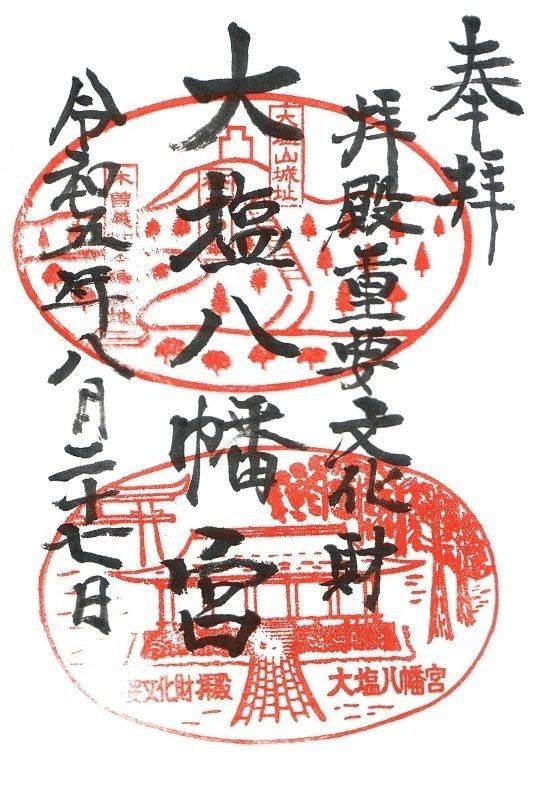 奉拝
拝殿重要文化財
大塩八幡宮
令和五年八月二十七日
大塩山城址
文化財拝殿
大塩八幡宮